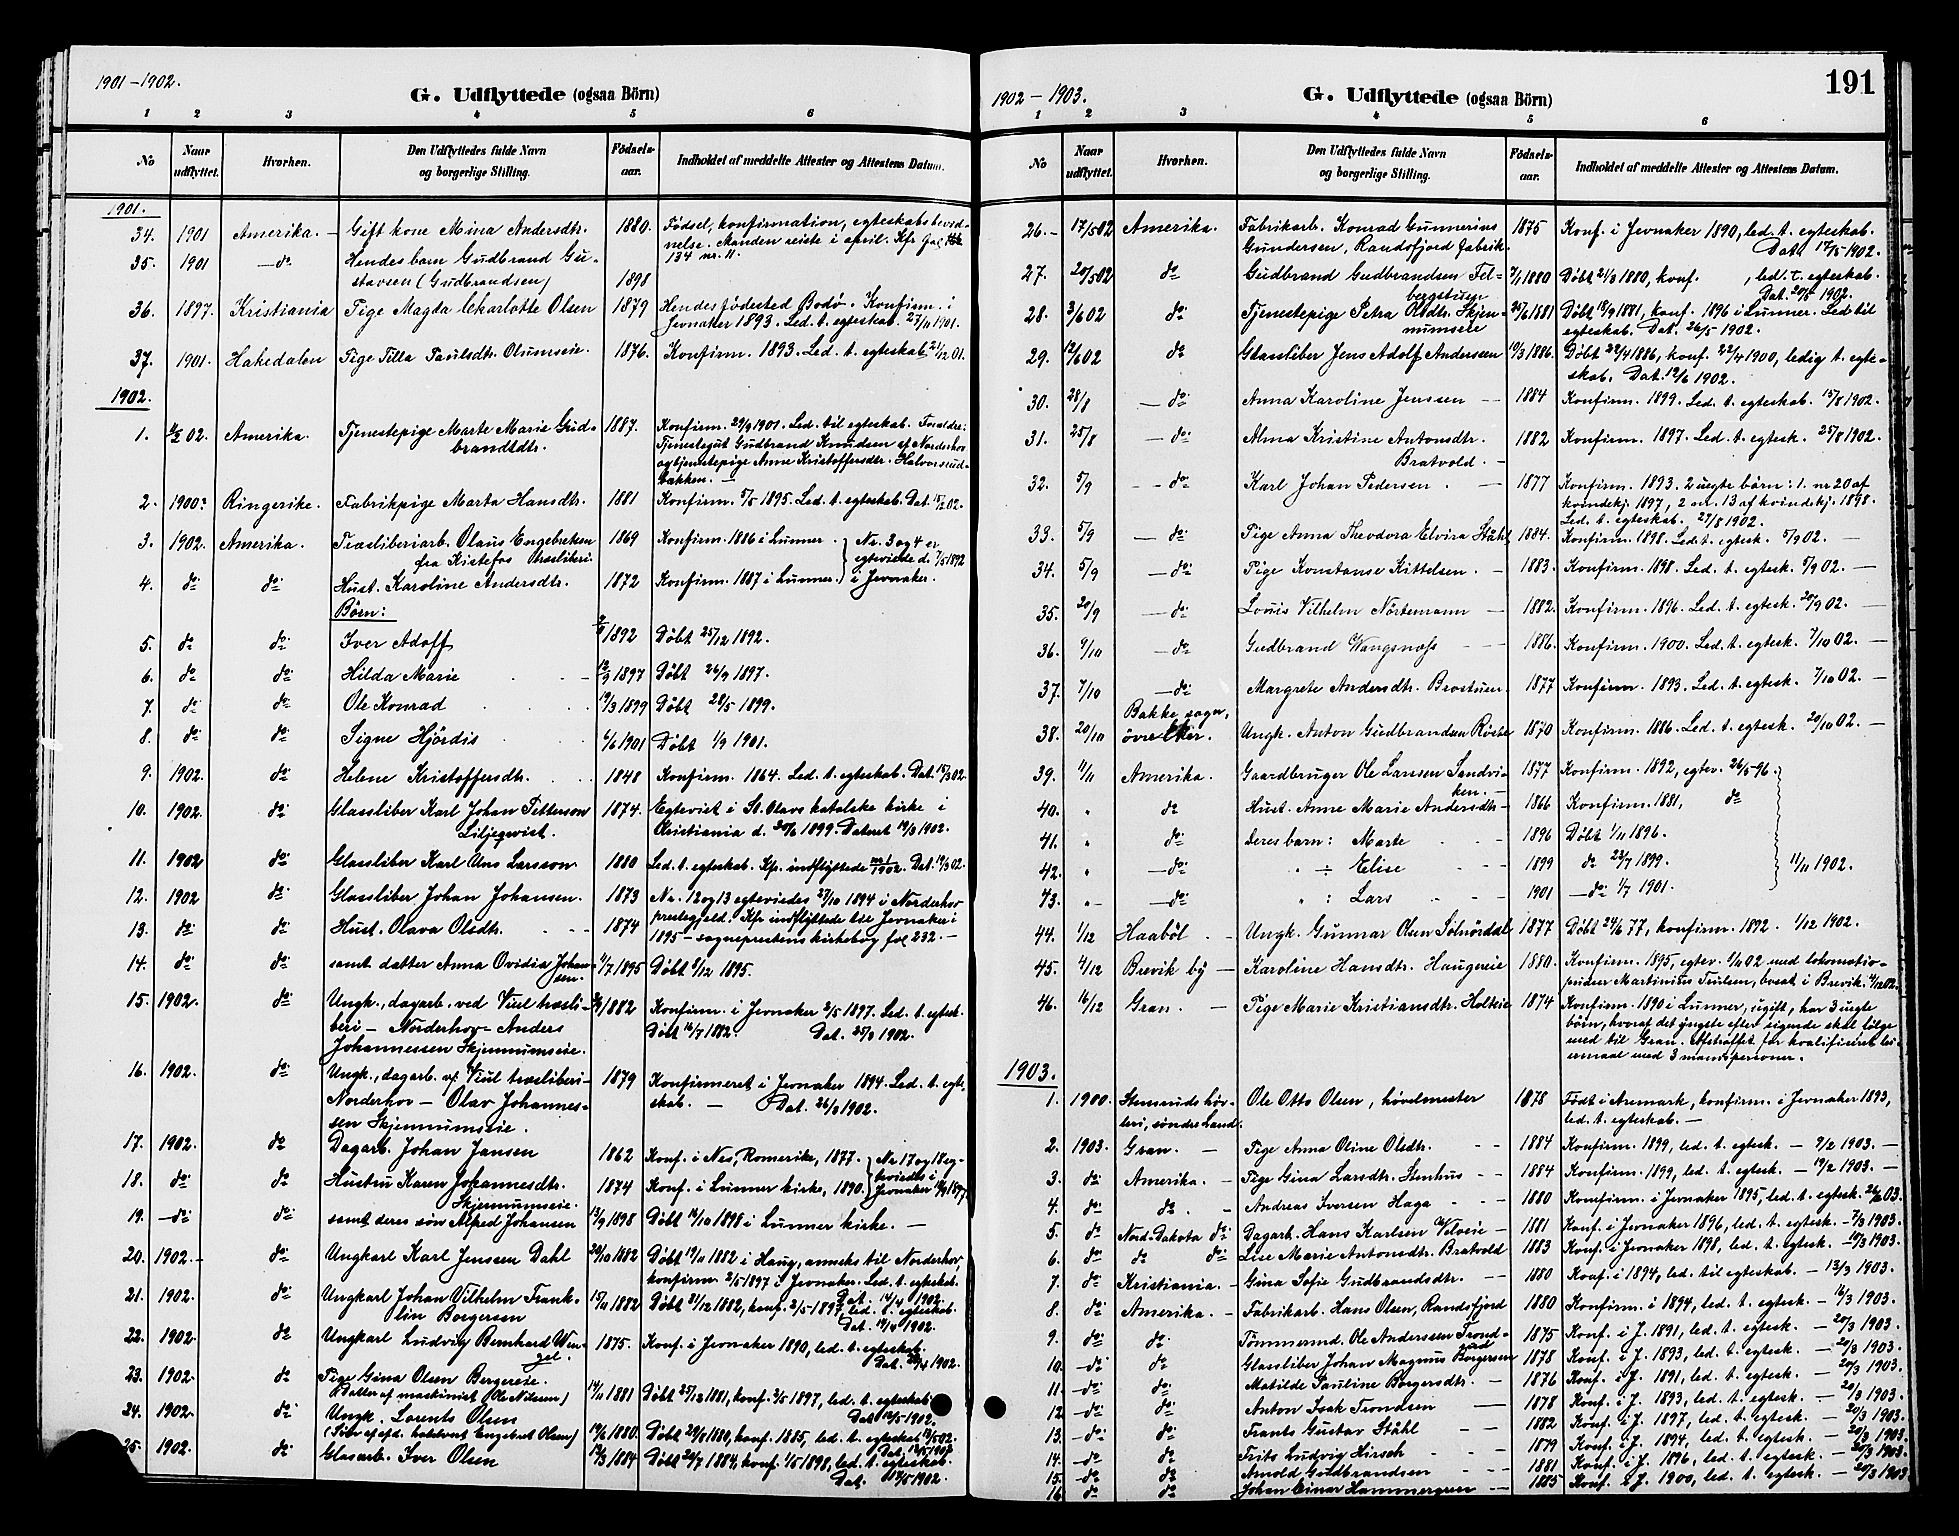 1901-1902.
G. Udflyttede (ogsaa Börn)
1 2 3 4 5 6
No Naar udflyttet. Hvorhen. Den Udflyttedes fulde Navn og borgerlige Stilling. Fødsels-aar. Indholdet af meddelte Attester og Attestens Datum.
1901.
34. 1901 Amerika. – Gift kone Mina Andersdtr. 1880. Fødsel, konfirmation, egteskabsbevid-
nelse. Manden reiste i april. Kfr
134 nr. 11.
35. 1901 – do Hendes barn Gudbrand Gu-
stavsen (Gudbrandsen) 1898
36. 1897. Kristiania Pige Magda Charlotte Olsen 1879 Hendes fødested Bodø. Konfirm. i
Jevnaker 1893. Led. t. egteskab. 27/11 1901.
37. 1901. Hakedalen Pige Tilla Paulsdtr. Olumseie. 1876. Konfirm. 1893. Led. t. egteskab. 21/12 01.
1902.
1. 02. Amerika. Tjenestepige Marte Marie Gud-
brandsdtr. 1887. Konfirm. 29/9 1901. Led. til egteskab. Forældre:
Tjenestegut Gudbrand Knudsen af Norderhov
og tjenestepige Anne Kristoffersdtr. Halvorsrud-
bakken. –
2. 1900? Ringerike. Fabrikpige Marta Hansdtr. 1881 Konfirm. 5/5 1895. Led. t. egteskab. Dat. 15/2 02.
3. 1902. Amerika. Træsliberiarb. Olaus Engebretsen
fra Kistefos Træsliberi. 1869 Konfirm. 1886 i Lunner. Nr. 3 og 4 er
egteviede d. 7/5 1892
4. do do Hust. Karoline Andersdtr. 1872 Konfirm. 1887 i Lunner. i Jevnaker.
Børn:
5. do do Iver Adolf 1892 Døbt 25/12 1892.
6. do do Hilda Marie 12/9 1897 Døbt 26/9 1897.
7. do do Ole Konrad 19/3 1899 Døbt 28/5 1899.
8. do do Signe Hjördis 6/6 1901 Døbt 1/9 1901.
9. 1902. do Helene Kristoffersdtr. 1848 Konfirm. 1864. Led. t. egteskab. Dat. 15/3 02.
10. 1902. do Glassliber Karl Johan Petterson
Liljeqvist. 1874. Egteviet i St. Olavs katolske kirke i
Christiania d. 20/6 1899. Dateret 19/3 1902.
11. 1902 do Glassliber Karl Larsson 1880 Led. t. egteskab. Kfr. indflyttede nr 1/1902. Dat. 19/3 02.
12. 1902 do Glassliber Johan Johansen. 1873 Nr. 12 og 13 egteviedes 27/10 1894 i Norderhov
prestegjeld. Kfr indflyttede til Jevnaker i
1895 – sogneprestens kirkebog fol 232. –
13. do do Hust. Olava Olsdtr. 1874
14. do do samt datter Anna Ovidia Johan-
sen. /7 1895 Døbt 8/12 1895.
15. 1902. do Ungk., dagarb. ved Viul træsli-
beri – Norderhov – Anders
Johannessen Skjennumseie. 1882 Konfirm. i Jevnaker 2/5 1897. Led. t. egtesk.
Døbt 16/7 1882. Dat. 25/3 1902.
16. 1902. do Ungk., dagarb. v/ Viul træsliberi –
Norderhov – Olav Johannes-
sen Skjennumseie. 1879 Konfirmeret i Jevnaker 1894. Led. t. egte-
skab. – Dat. 26/3 1902.
17. 1902. do Dagarb. Johan Jansen 1862 Konf. i Nes, Romerike, 1877. Nr. 17 og 18 eg-
teviedes i
Jevnaker 1897.
18. do do Hustru Karen Johannesdtr.
Skjennumseie. 1874 Konf. i Lunner kirke, 1890.
19. – do do samt deres søn Alfred Johansen 13/9 1898 Døbt 16/10 1898 i Lunner kirke. –
20. 1902. – do Ungkarl Karl Jenssen Dahl 20/10 1882 Døbt 19/11 1882 i Haug, anneks til Norderhov,
konfirm. 2/5 1897 i Jevnaker. Led. t. egteskab.
Dat. 14/4 1902.
21. 1902. do Ungkarl Johan Vilhelm Frank-
lin Borgersen 15/11 1882 Døbt 31/12 1882, konf. 2/5 1897, led. t. egteskab.
Dat. 19/4 1902.
22. 1902. do Ungkarl Ludvig Bernhard Wen-
gel. 1875. Konf. i Jevnaker 1890, led. t. egteskab.
Dat. /4 1902.
23. 1902. do Pige Gina Olsen Bergereie.
(Datter af maskinist Ole Nilsen) 14/11 1881 Døbt 25/12 1881, konf. 2/5 1897, led. t. egteskab
Dat. 12/5 1902.
24. 1902. do Ungk. Lorents Olsen
Engebret Olsen) 19/6 1880. Døbt 29/8 1880, konf. 1885, led. t. egteskab 13/5 02.
25. 1902. do Glasarb. Iver Olsen 12/3 1884 Døbt 20/7 1884, konf. 1/5 1898, led. t. egteskab.
Dat. 17/5 1902.
1902 – 1903.
G. Udflyttede (ogsaa Börn)
191
1 2 3 4 5 6
No Naar udflyttet. Hvorhen. Den Udflyttedes fulde Navn og borgerlige Stilling. Fødsels-aar. Indholdet af meddelte Attester og Attestens Datum.
26. – 17/5 02 Amerika. Fabrikarb. Konrad Gunnerius
Gundersen, Randsfjord fabrik. 1875 Konf. i Jevnaker 1890, led. t. egteskab.
Dat. 17/5 1902.
27. 20/5 02 do Gudbrand Gudbrandsen Fel-
bergstuen 7/1 1880 Døbt 21/3 1880, konf. , led. t. egteskab.
Dat. 20/5 1902.
28. 3/6 02 do Tjenestepige Petra Olsdtr. Skjen-
numseie 30/6 1881 Døbt 18/9 1881, konf. 1896 i Lunner. Led til
egteskab. Dat. 26/5 1902.
29. 12/6 02 do Glassliber Jens Adolf Andersen 19/3 1886. Døbt 22/4 1886, konf. 22/4 1900, ledig t. egte-
skab. Dat. 12/6 1902.
30. 28/8 – do Anna Karoline Jenssen – 1884 Konfirm. 1899. Led. t. egteskab. 15/8 1902.
31. 25/8 – do Alma Kristine Antonsdtr.
Bratvold. – 1882 Konfirm. 1897. Led. t. egtesk. 25/8 1902.
32. 5/9 – do Karl Johan Pedersen. – 1877 Konfirm. 1893. 2 uegte børn: 1. nr 20 af
kvindekj. 1897, 2 nr. 13 af kvindekj. 1898.
Led. t. egteskab. 27/8 1902.
33. 5/9 – do Pige Anna Theodora Elvira Ståhl 1884. Konfirm. 1898. Led. t. egtesk. 5/9 02. –
34. 5/9 – do Pige Konstanse Kittelsen. – 1883. Konfirm. 1898. Led. t. egtesk. 5/9 02. –
35. 20/9 – do Louis Vilhelm Nörtemann – 1882. Konfirm. 1896. Led. t. egtesk. 20/9 02. –
36. 9/10 – do Gudbrand Wangsness – 1886. Konfirm. 1900. Led. t. egtesk. 7/10 02. –
37. 7/10 – do Margrete Andersdtr. Brostuen. 1877 Konfirm. 1893. Led. t. egtesk. 7/10 02. –
38. 20/10 Bakke sogn,
øvre Eker. Ungk. Anton Gudbrandsen Røste 1870 Konfirm. 1886. Led. t. egtesk. 20/10 02. –
39. 11/11 Amerika. Gaardbruger Ole Larssen Sandvi-
ken. – 1877 Konfirm. 1892, egtev. 26/5 96.
40. " do Hust. Anne Marie Andersdtr. – 1866 Konfirm. 1881, do
41. " do deres barn: Marte 1896 Døbt 1/11 1896.
42. " – do " ÷ Elise 1899 do 23/7 1899. 11/11 1902.
43. " – do " : Lars 1901 – do 1/7 1901.
44. 1/12 Haaböl – Ungk. Gunnar Olsen Sölnördal 1877 Døbt 24/6 77, konfirm. 1892. 1/12 1902.
45. 4/12 Brevik by – Karoline Hansdtr. Haugereie 1880. Konfirm. 1895, egtev. 02 med lokomotiv-
pudser Martinius Paulsen, bosat i Brevik. 4/12 02.
46. 16/12 Gran. – Pige Marie Kristiansdtr. Holteie 1874 Konfirm. 1890 i Lunner, ugift, har 3 uegte
børn, hvoraf det yngste efter sigende skal følge
med til Gran. Afstraffet for kvalificeret lei-
ermaal med 3 mandspersoner.
1903.
1. 1900. høv-
leri, søndre Land. Ole Otto Olsen, høvelmester 1878 Født i Aremark, konfirm. i Jevnaker 1893,
led. t. egteskab. –
2. 1903. Gran. – Pige Anna Oline Olsdtr. – 1884 Konfirm. 1899, led. t. egtesk. – 9/2 1903. –
3. do Amerika. – Pige Gina Larsdtr. Stenhus – 1884 Konfirm. 1899, led. t. egtesk. – 19/2 1903. –
4. do do. – Andreas Iversen Haga – 1880 Konfirm. i Jevnaker 1895, led. t. egtesk. 26/2 03.
5. do Nord. Dakota do Dagarb. Hans Karlsen Velveie – 1881 Konf. i Jevnaker 1896, led. t. egtesk. – 7/3 1903.
6. do do do Lise Marie Antonsdtr. Bratvold 1883 Konf. i Jevnaker 1898, led. t. egtesk. – 10/3 1903.
7. do Kristiania. – Gina Sofie Gudbrandsdtr. – 1880 Konf. i 1894, led. til egteskab. – 13/3 1903.
8. do Amerika. – Fabrikarb. Hans Olsen, Randsfjord 1880 Konfirm. i 1894, led. t. egtesk. – 16/3 1903.
9. do do Tömmermd. Ole Anderssen Trond-
rud 1875 Konf. i J. 1891, led. t. egtesk. – 20/3 1903.
10. – do do Glassliber Johan Magnus Borgersen 1878 Konf. i J. 1893, led. t. egtesk. – 20/3 1903.
11. – do do Matilde Pauline Borgersdtr. – 1876 Konf. i J. 1891, led. t. egtesk. – 20/3 1903.
12 – do do Anton Isak Trondsen – 1878 Konf. i J. 1893, led. t. egtesk. – 20/3 1903.
13. – do do Frants Gustav Ståhl – 1882 Konf. i J. 1897, led. t. egtesk. – 20/3 1903.
14. – do do Frits Ludvig Hirsch – 1879 Konf. i J. 1894, led. t. egtesk. – 20/3 1903.
15. – do do Arnold Gudbrandsen – 1881 Konf. i J. 1896, led. t. egtesk. – 20/3 1903.
16 do do Johan Einar Hammergren – 1885 Konf. i J. 1900, led. t. egtesk. – 20/3 1903.